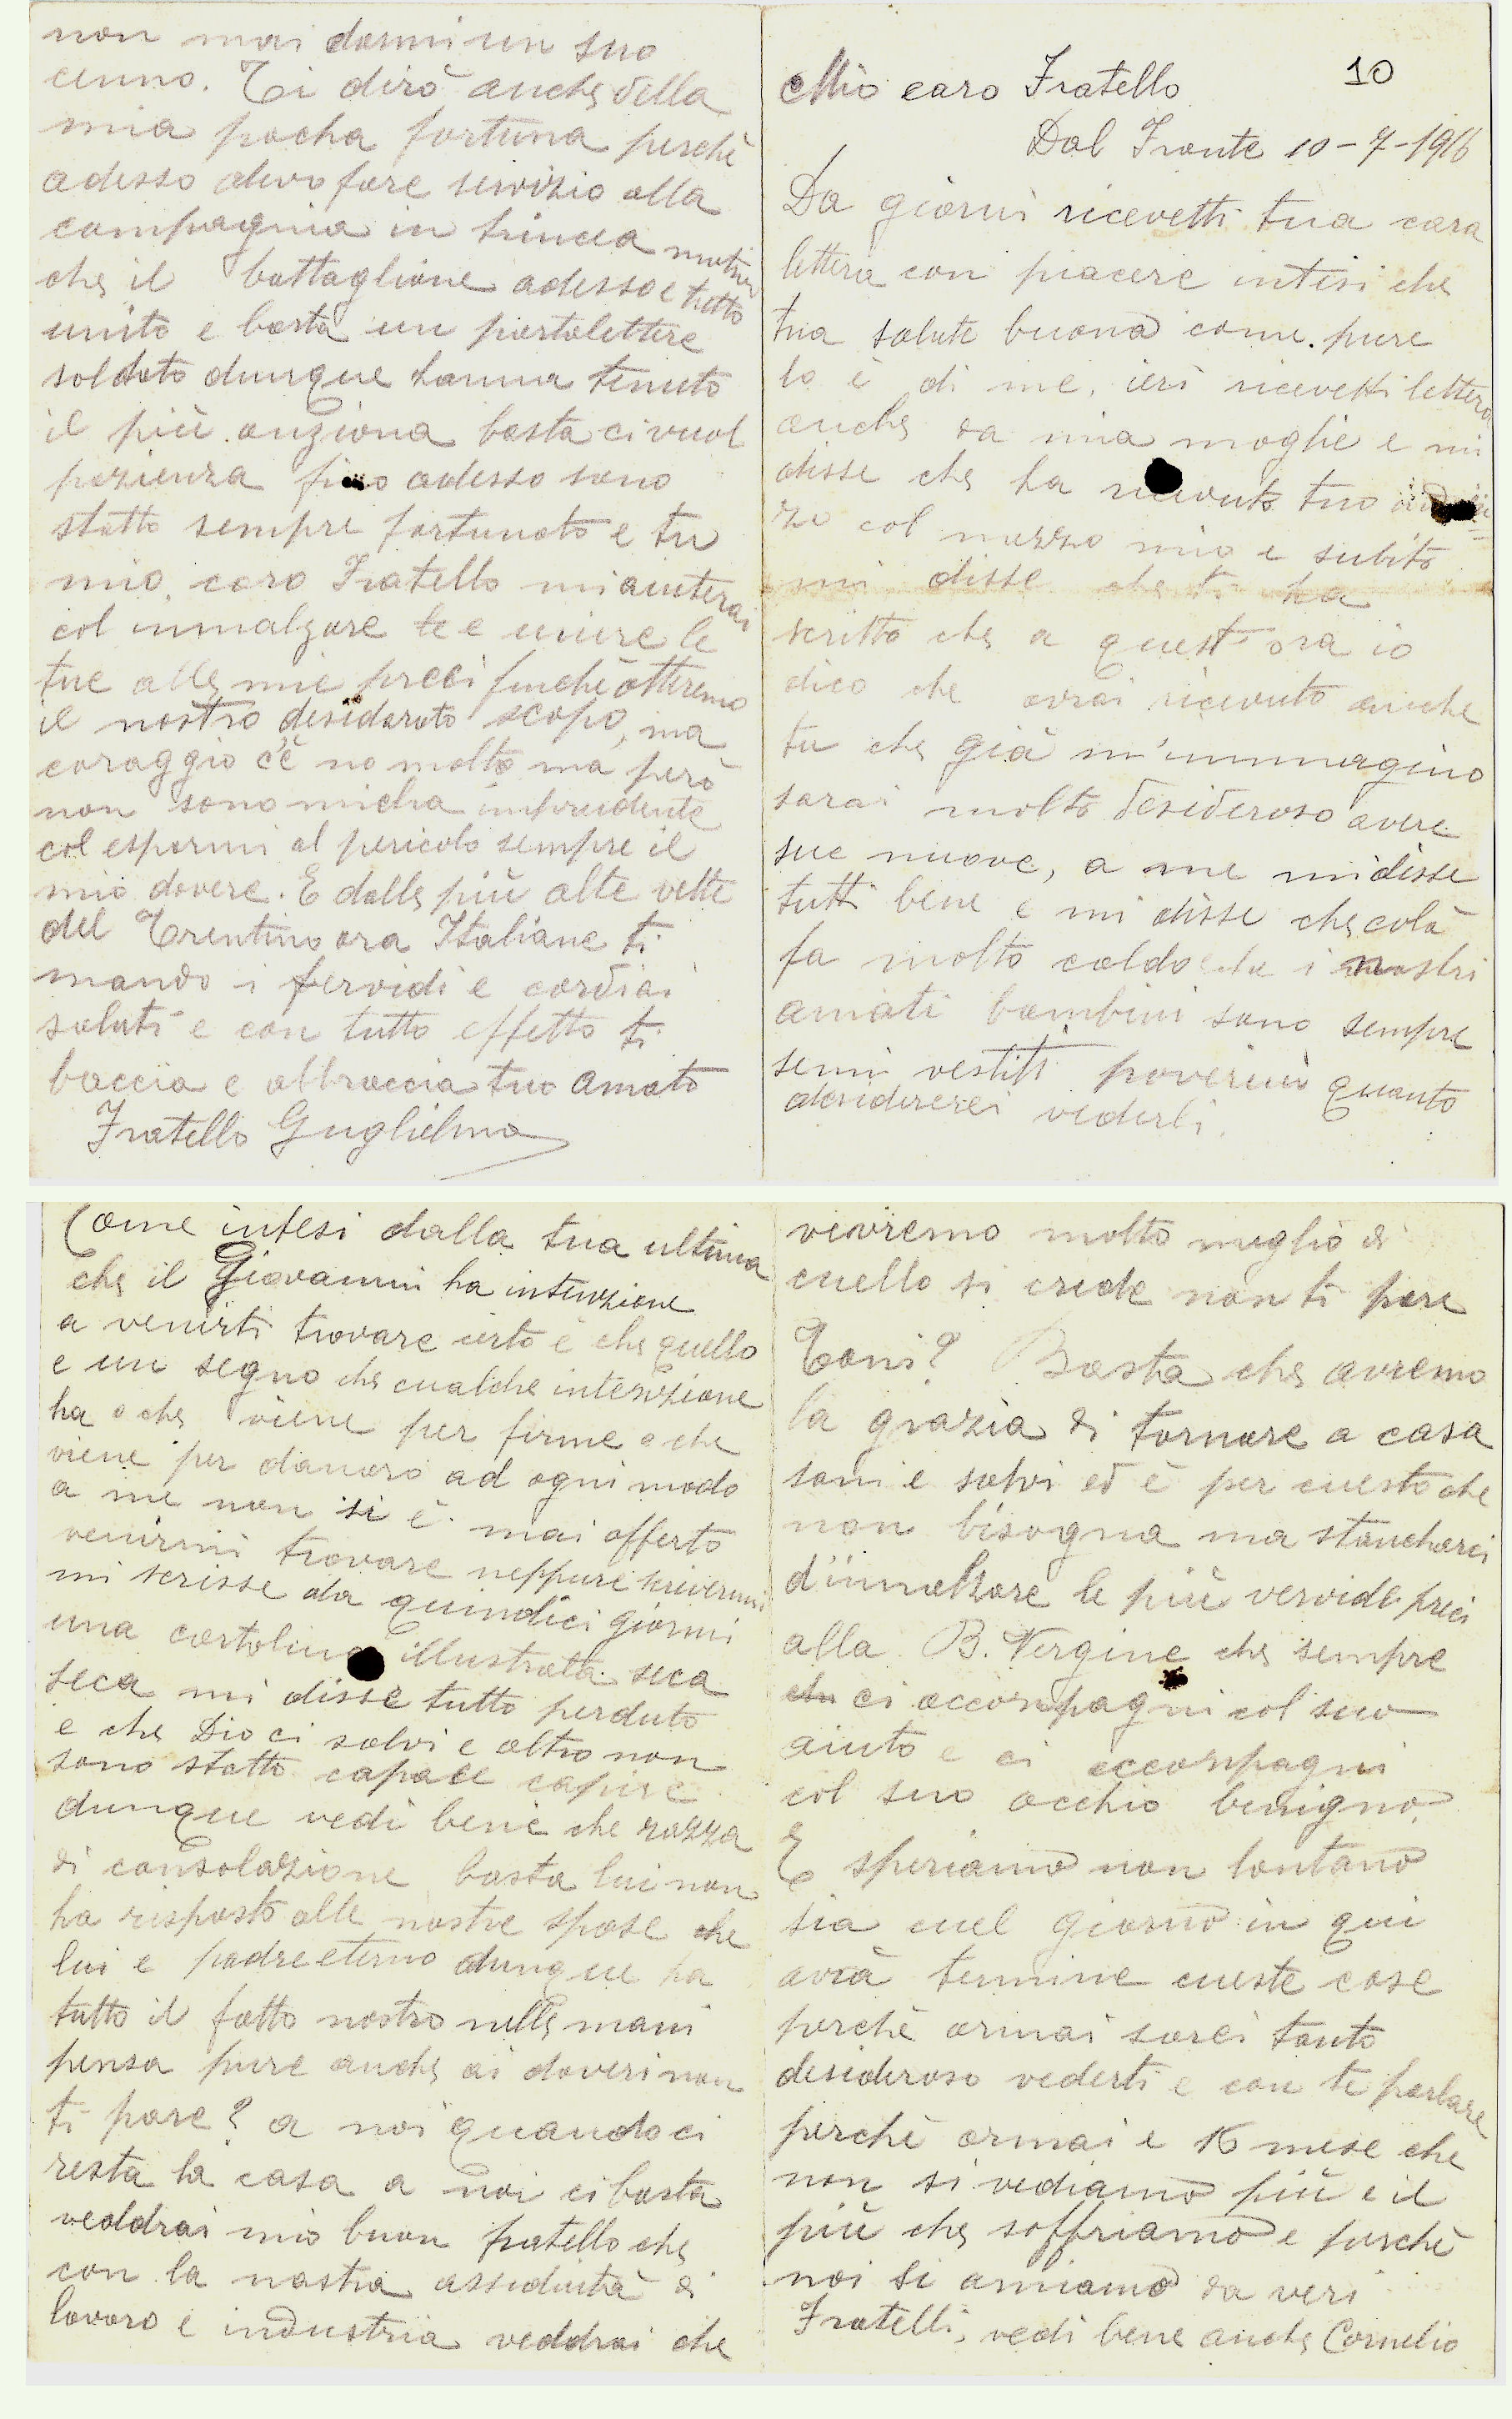 10
Mio caro Fratello
Dal Fronte 10-7-1916
Da giorni ricevetti tua cara
lettera con piacere intesi che
tua salute buona come pure
lo è di me. ieri ricevetti lettera
anche da mia moglie e mi
disse che ha ricevuto tuo
zo col mezzo mio e subito
mi disse che ti ha
scritto che a quest'ora io
dico che avrai ricevuto anche
tu che già m'immagino
sarai molto desideroso avere
sue nuove, a me mi disse
tutti bene e mi disse che colà
fa molto caldo che i nostri
amati bambini sono sempre
semi vestiti poverini quanto
desidererei vederli.
Come intesi dalla tua ultima
che il Giovanni ha intenzione
a venirti trovare certo è che quello
e un segno che cualche intenzione
ha o che viene per firme o che
viene per danaro ad ogni modo
a me non si è mai offerto
venirmi trovare neppure scrivermi
mi scrisse da quindici giorni
una cartolina illustrata seca
seca mi disse tutto perduto
e che Dio ci salvi e altro non
sono statto capace capire
dunque vedi bene che razza
di consolazione basta lui non
ha risposto alle nostre spose che
lui e padre eterno dunque ha
tutto il fatto nostro nelle mani
pensa pure anche ai doveri non
ti pare? a noi quando ci
resta la casa a noi ci basta
veddrai mio buon fratello che
con la nostra assiduità di
lavoro e industria veddrai che
vivremo molto meglio di
cuello si crede non ti pare
Toni? Basta che avremo
la grazia di tornare a casa
sani e salvi ed è per cuesto che
non bisogna ma stancharci
d'innalzare le più vervide preci
alla B. Vergine che sempre
che ci accompagni col suo
aiuto e ci accompagni
col suo occhio benigno.
E speriamo non lontano
sia cuel giorno in qui
avrà termine cueste cose
perchè ormai sarei tanto
desideroso vederti e con te parlare
perchè ormai e 16 mese che
non si vediamo più e il
più che soffriamo e perchè
noi si amiamo da veri
Fratelli, vedi bene anche Cornelio
non mai darmi un suo
cenno. Ti dirò anche della
mia pocha fortuna perchè
adesso devo fare servizio alla
compagnia in trincea motivo
che il battaglione adesso e tutto
unito e basta un portalettere
soldato dunque hanno tenuto
il più anziona basta ci vuol
pazienza fino adesso sono
statto sempre fortunato e tu
mio caro Fratello mi aiuterai
col innalzare te e unire le
tue alle mie preci finchè otteremo
il nostro desiderato scopo, ma
coraggio c'è no molto ma però
non sono micha imprudente
col espormi al pericolo sempre il
mio dovere. E dalle più alte vette
del Trentino ora Italiane ti
mando i fervidi e cordiai
saluti e con tutto effetto ti
baccia e abbraccia tuo amato
Fratello Guglielmo